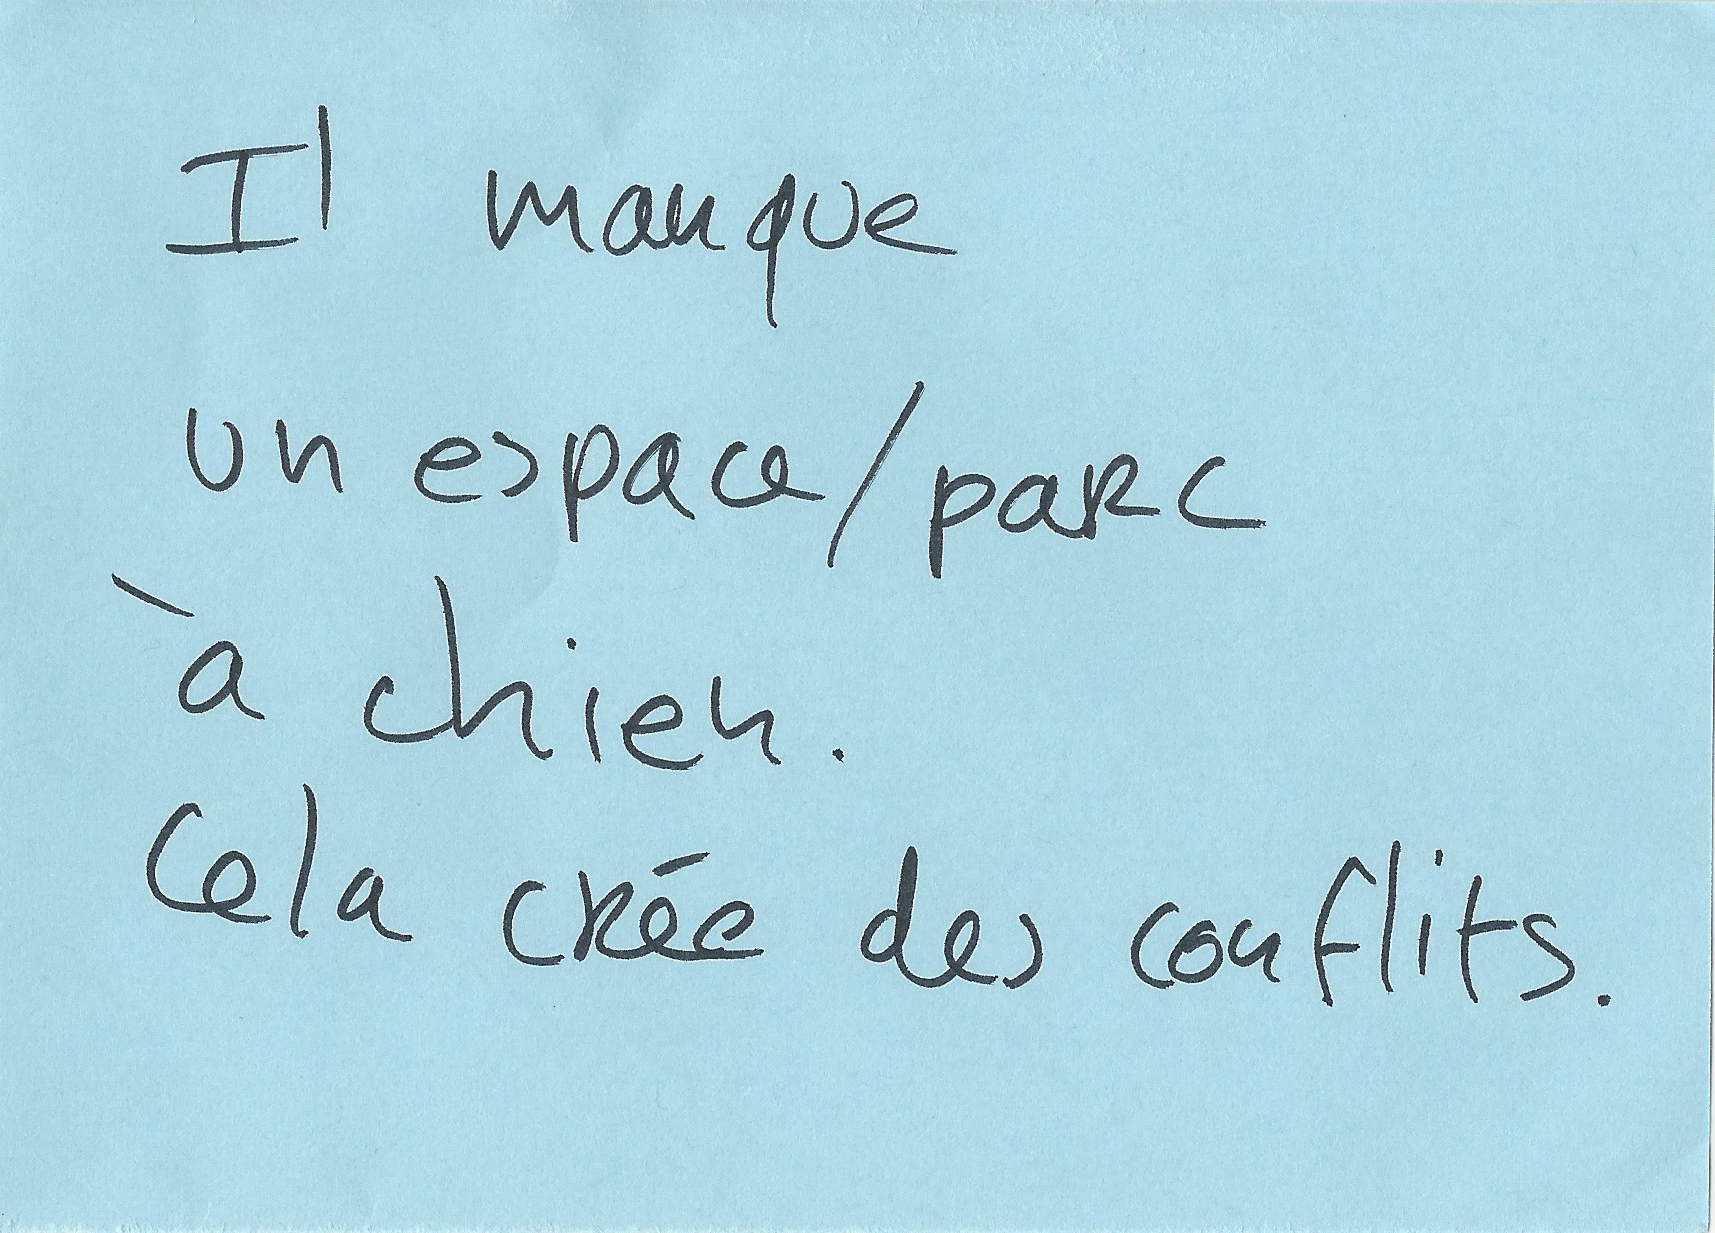 Il manque
un espace/parc
à chien.
Cela crée des conflits.